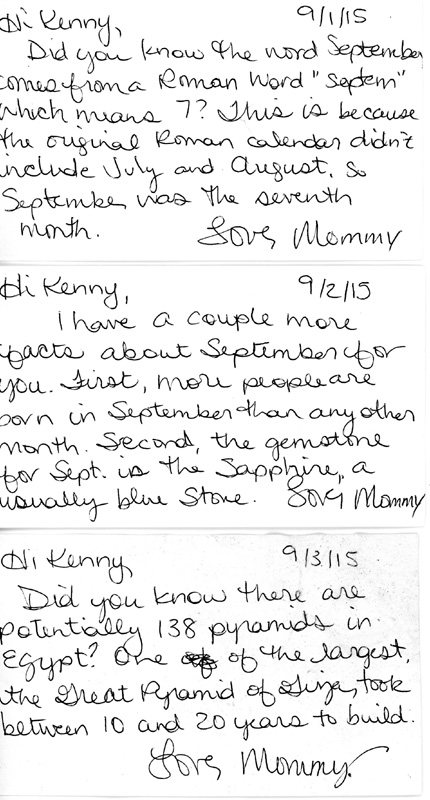 Hi Kenny, 9/1/15
Did you know the word September
comes from a Roman Word "septem"
which means 7? This is because
the original Roman calendar didn't
include July and August, so
September was the seventh
month. Love, Mommy
Hi Kenny, 9/2/15
I have a couple more
facts about September for
you. First, more people are
born in September than any other
month. Second, the gemstone
for Sept. is the Sapphire, a
usually blue stone. Love, Mommy
Hi Kenny, 9/3/15
Did you know there are
potentially 138 pyramids in
Egypt? One of the largest,
the Great Pyramid of Giza, took
between 10 and 20 years to build.
Love, Mommy.